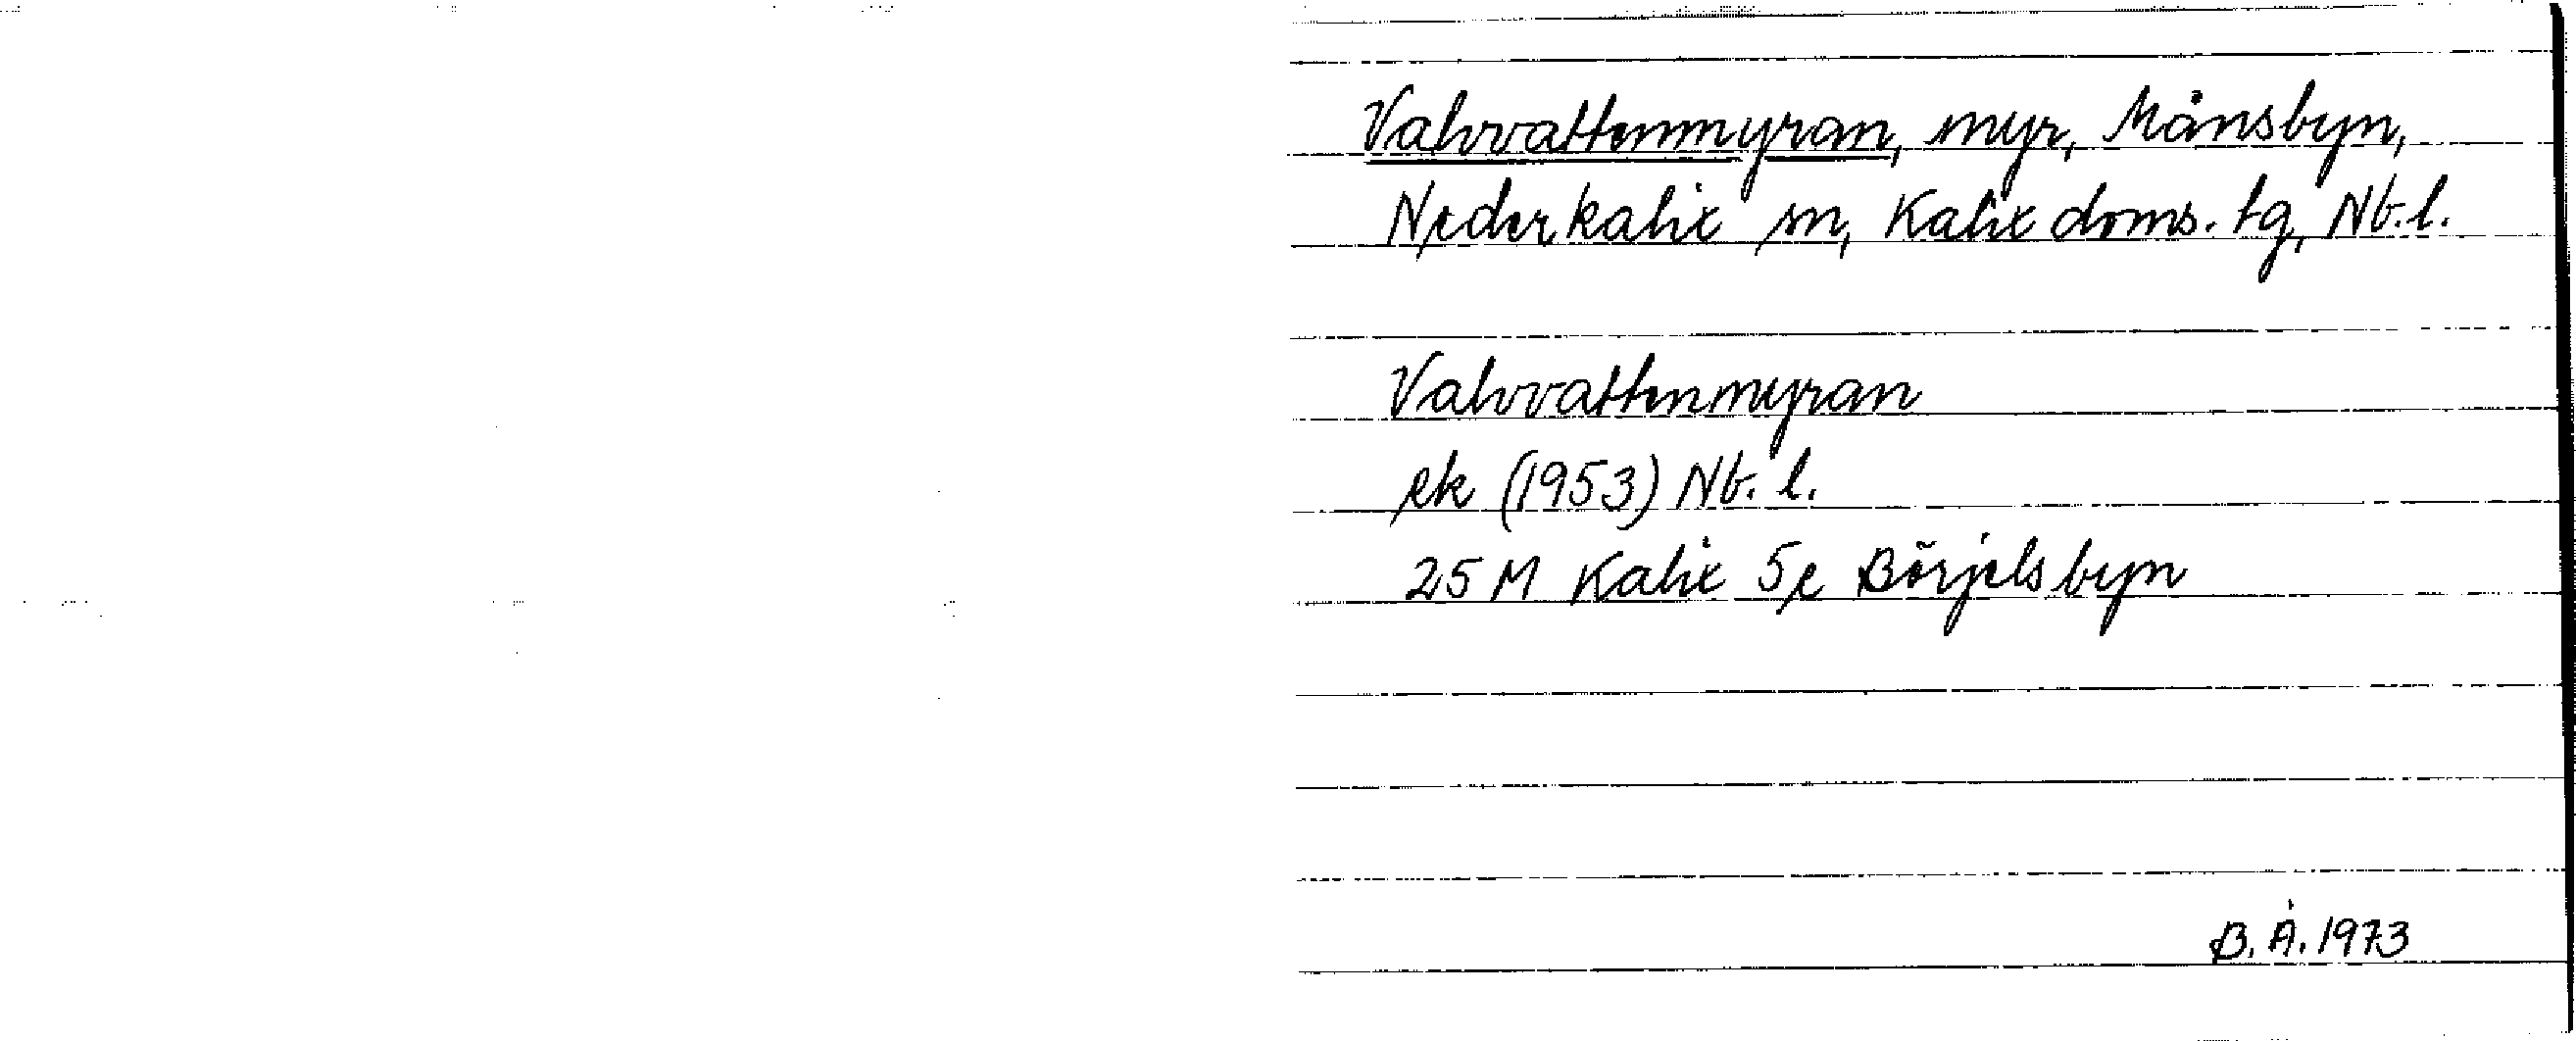 Valvvattenmyran, myr, Månsbyn,
Nederkalix sn, Kalix doms. tg, Nb.l.
Valvvattenmyran
ek (1953) Nb. l.
25 M Kalix 5e Börjelsbyn
B. Å. 1973